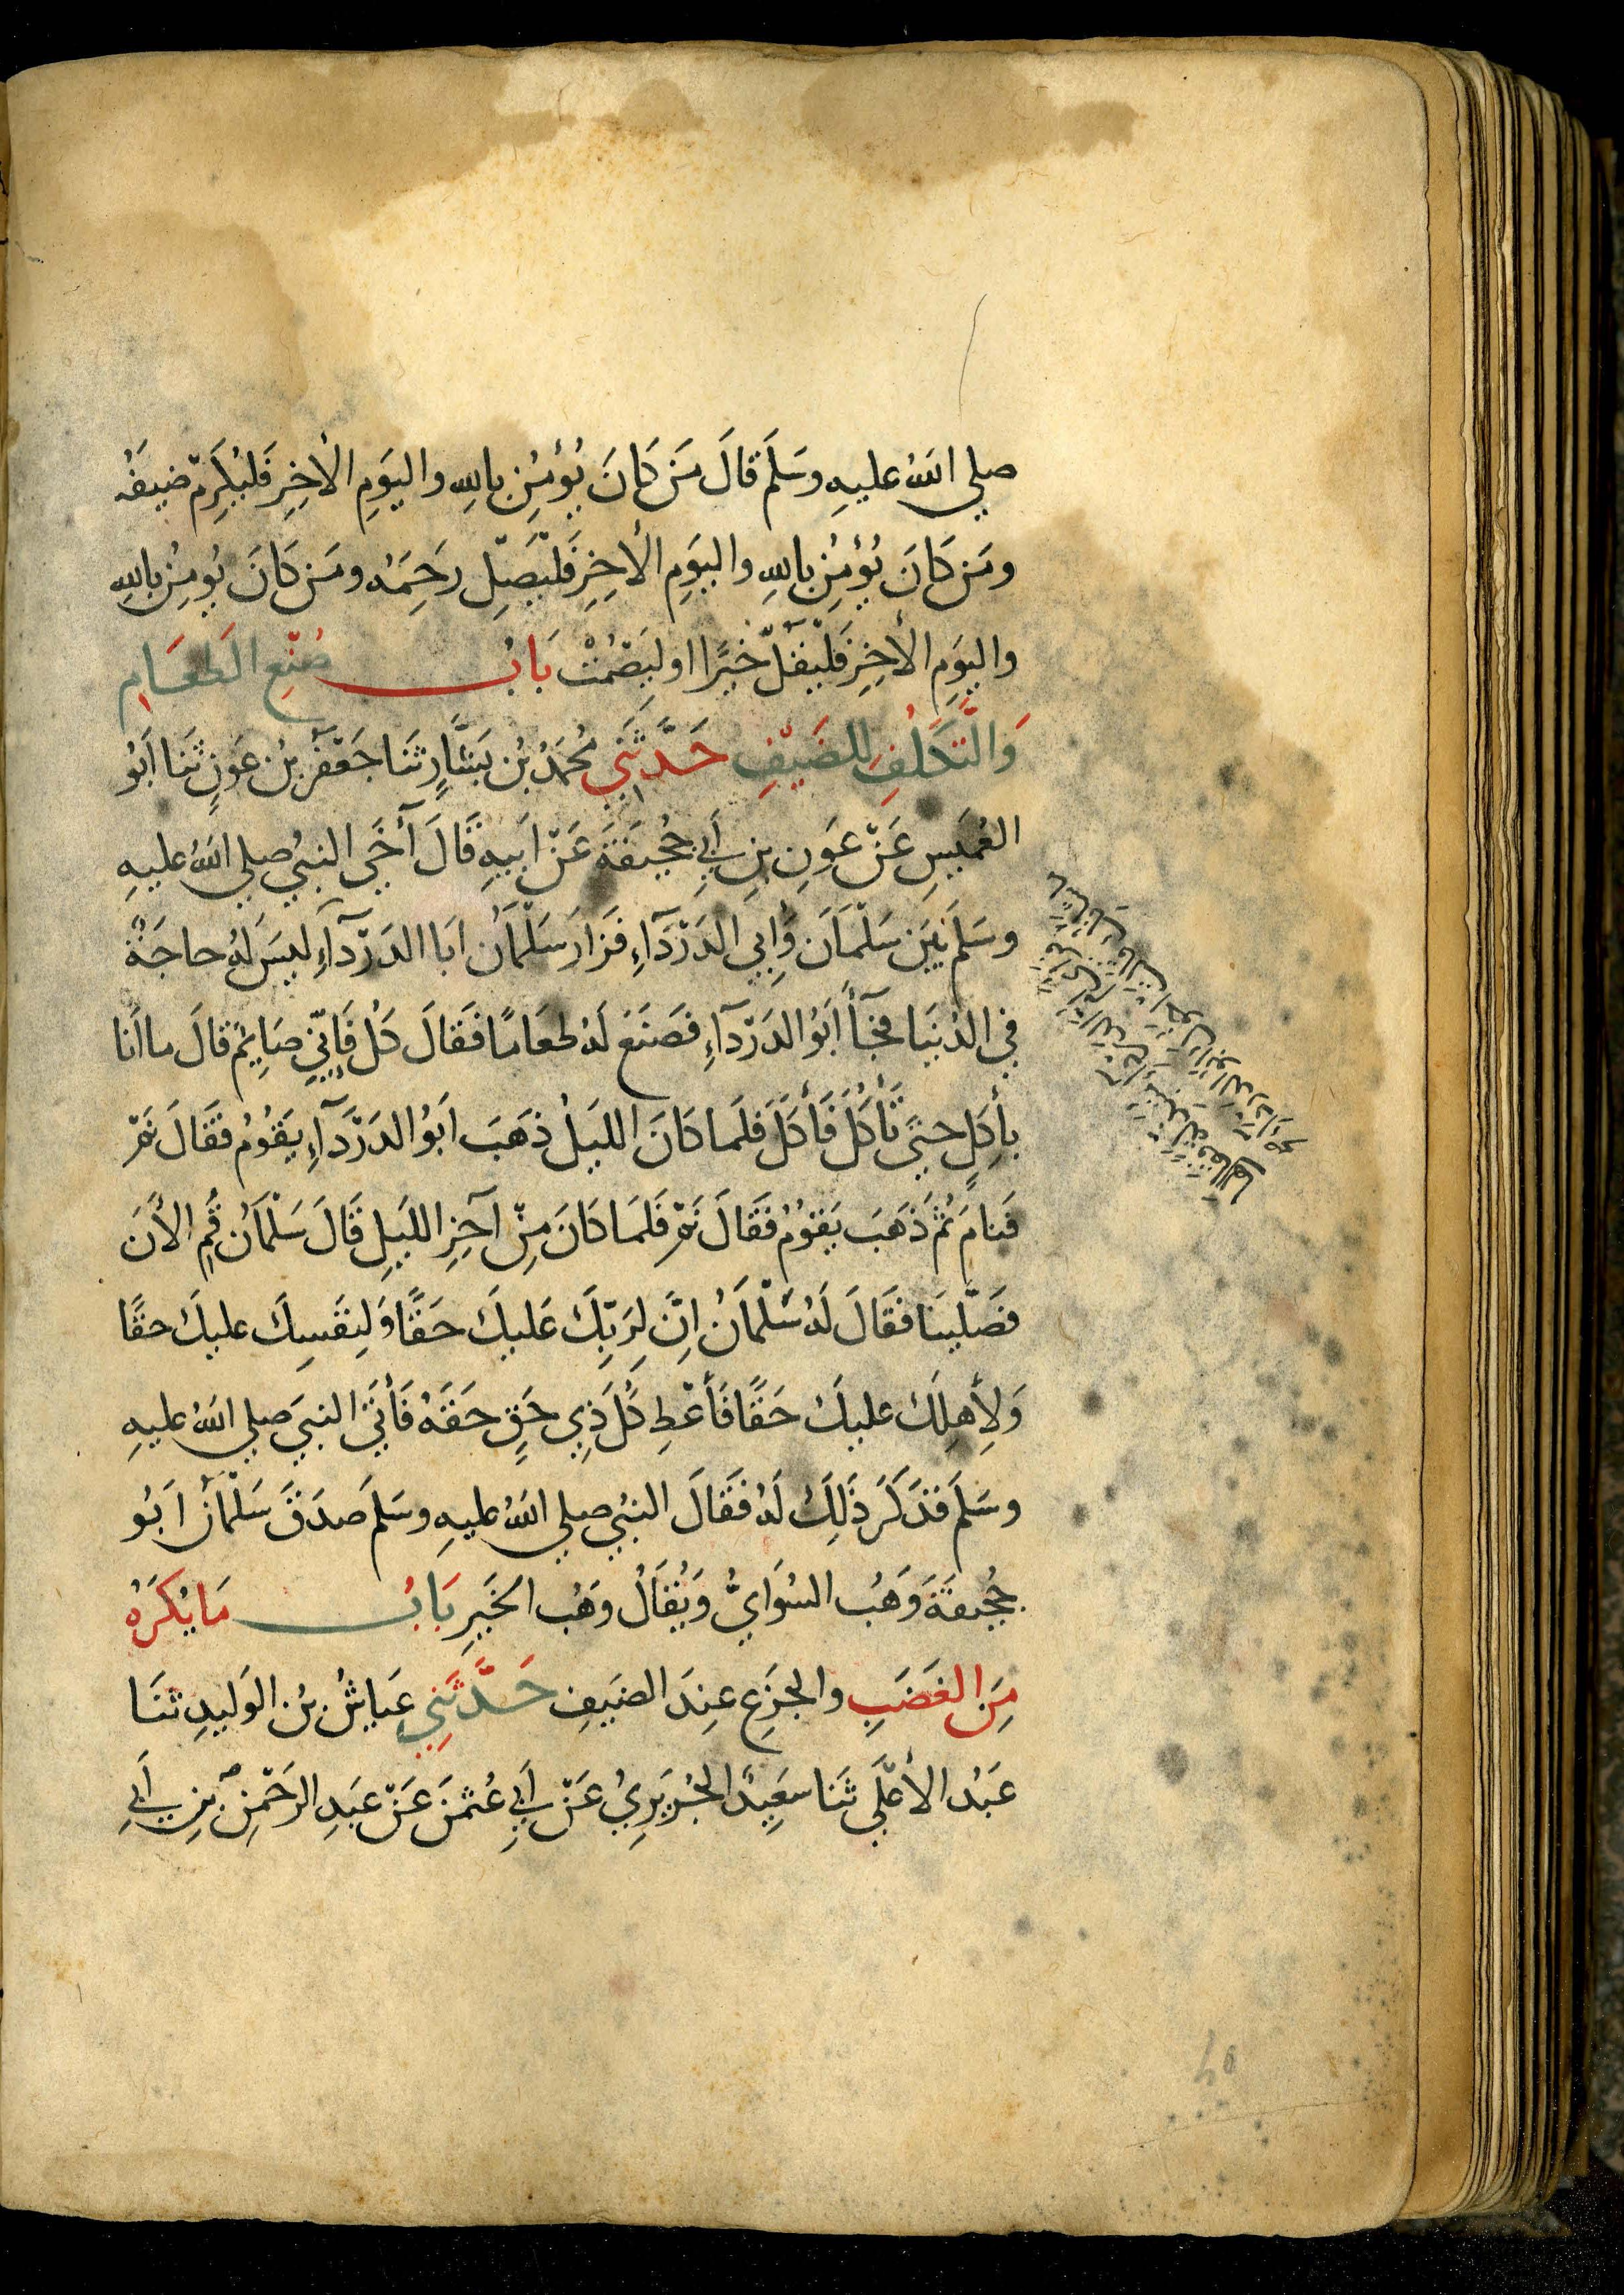 صلي اللهُ عليهِ وسَلَمَ قالَ مَن كَانَ يُؤمِنُ باللهِ واليَومِ الأخِرِ فَليُكرِمْ ضيفَهُ
ومَن كَانَ يُؤمِنُ باللهِ واليَومِ الأخِرِ فَلْيَصِلْ رَحِمَهُ ومَن كَانَ يُومِنُ باللهِ
واليَومِ الأخِرِ فَلْيَقُلْ خَيرًا اولِيَصْمُتْ بَابُ صُنْعِ الطَعَامِ
وَالتَّكَلُفِ للضَيْفِ حَدَّثَنِي مُحَمَدُ بنُ بَشَّارٍ ثَنَا جَعْفَرُ بنُ عَونٍ ثَنَا ابُو
العُمَيسِ عَنْ عَونِ بنِ أبِي جُحَيفَةَ عَنْ ابَيهِ قَالَ آخَي النبيُ صلي اللهُ عليهِ
وسَلَمَ بَيَن سَلْمَانَ وَأبِي الدَرْدَآءِ فَزَارَ سَلْمَانُ ابَا الدَرْدَآءِ ليسَ لهُ حاجَةٌ
في الدُنيَا فجَآءَ ابُو الدَرْدَآءِ فصَنَعَ لَهُ طعَامًا فَقالَ كُلْ فَاِنّي صَايِمٌ قالَ ما أنا
بأكِلٍ حتيَ تَأكُلَ فَأكَلَ فلَما كانَ الليَلُ ذهَبَ ابَوُ الدَرْدَآءِ يَقُومُ فقَالَ نَمْ
فَنامَ ثُمَ ذَهَبَ يَقوُمُ فَقَالَ نَمْ فَلَمَا كانَ مِنْ آخِرِ الليَلِ قالَ سَلْمَانُ قُمِ الأنَ
فصَلَّينَا فَقَالَ لَهُ سَلْمَانُ اِنَّ لِرَبِّكَ عَليكَ حَقًّا وَلِنفَسِكَ عليكَ حقًا
وَلأهلِكَ عليكَ حَقًا فَأعْطِ كُلَ ذِي حَقٍ حَقَهُ فَأتَيَ النبيَ صلي اللهُ عليهِ
وسَلَمَ فذَكَرَ ذَلِكَ لَهُ فقَالَ النبيُ صلي اللهُ عليهِ وسَلَمَ صدَقَ سَلْمَانُ ابَوُ
جُحَيفَةَ وَهبُ السُوَايُّ وَيُقَالُ وَهْبُ الخَيرِ بَابُ مَا يُكْرَهُ
مِنَ الغَضَبِ والجزَعِ عِندَ الضَيفِ حَدَّثَنِي عيَاشُ بنُ الوَليدِ ثنَا
عَبدُ الأعْلَي ثَنا سعَيِدٌ الجُرَيرِيُ عَنْ أبِي عُثمنَ عَنْ عبَدِ الرَحْمنِ بنِ أبِي